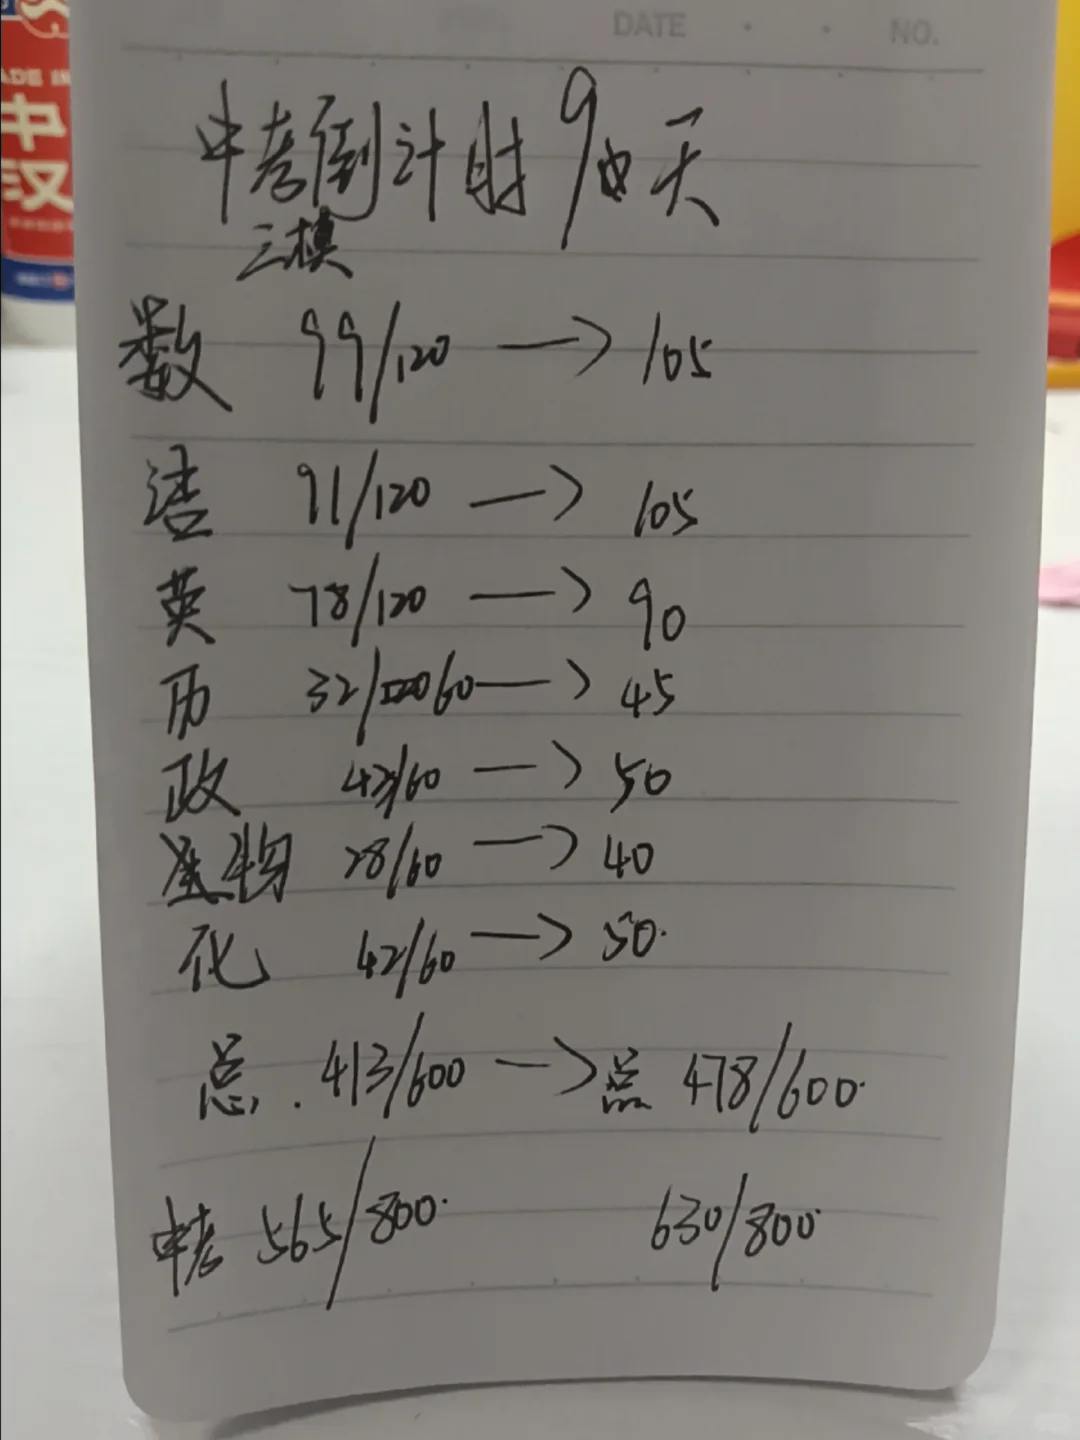 DATE · · NO.
ADE IN
中
汉
中考倒计时9天
三模
数 99/120 → 105
语 91/120 → 105
英 78/120 → 90
历 32/60 → 45
政 43/60 → 50
生物 28/60 → 40
化 42/60 → 50.
总. 413/600 → 总 478/600.
中考 565/800. 630/800.